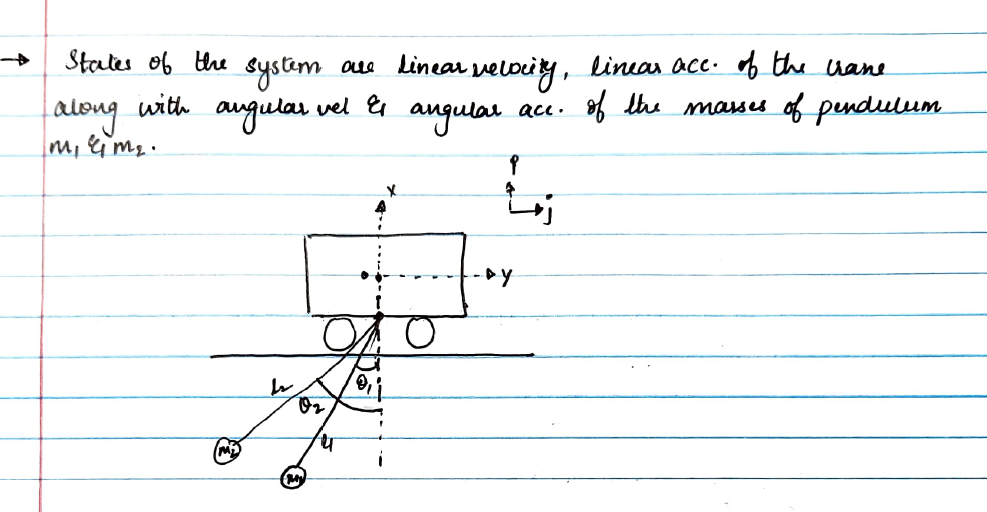 → States of the system are linear velocity, linear acc. of the crane
along with angular vel & angular acc. of the masses of pendulum
m₁ & m₂.
x
j
y
θ₁
L₂
θ₂
l₁
m₂
m₁